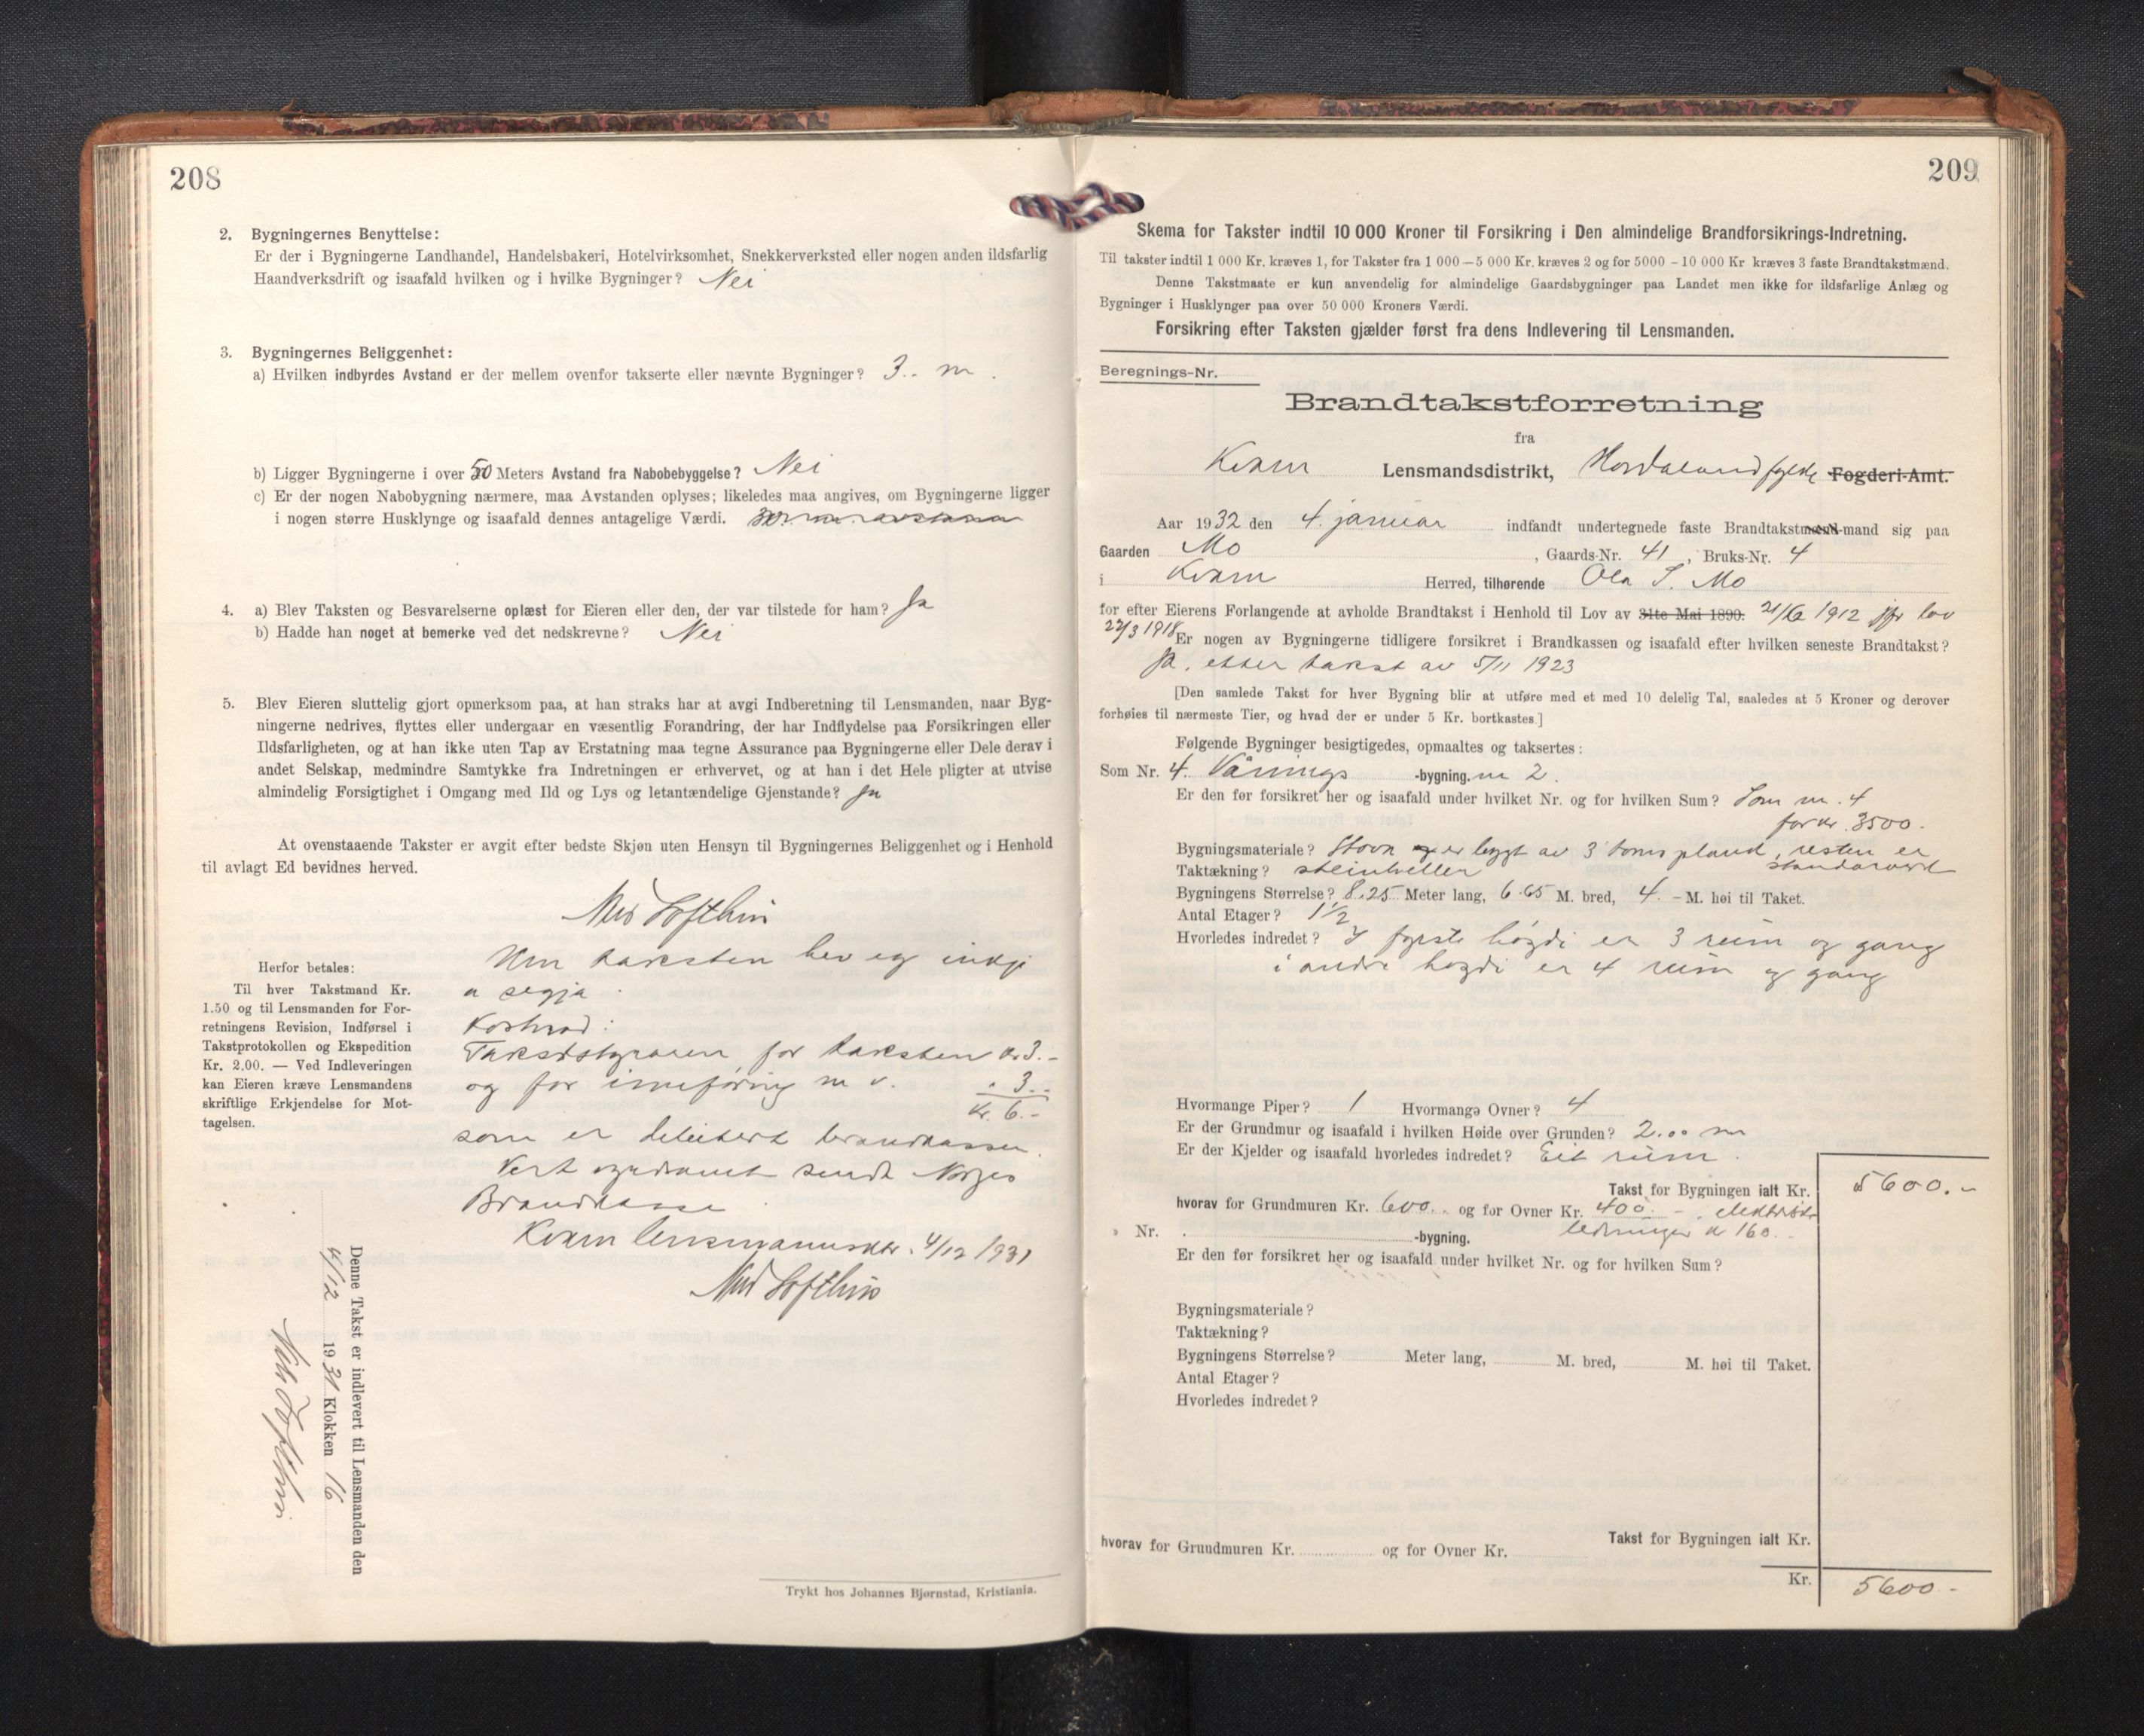 208
2. Bygningernes Benyttelse:
Er der i Bygningerne Landhandel, Handelsbakeri, Hotelvirksomhet, Snekkerverksted eller nogen anden ildsfarlig
Haandverksdrift og isaafald hvilken og i hvilke Bygninger? Nei
3. Bygningernes Beliggenhet:
a) Hvilken indbyrdes Avstand er der mellem ovenfor takserte eller nævnte Bygninger? 3.- m.
b) Ligger Bygningerne i over 50 Meters Avstand fra Nabobebyggelse? Nei
c) Er der nogen Nabobygning nærmere, maa Avstanden oplyses; likeledes maa angives, om Bygningerne ligger
i nogen større Husklynge og isaafald dennes antagelige Værdi.
4. a) Blev Taksten og Besvarelserne oplæst for Eieren eller den, der var tilstede for ham? Ja
b) Hadde han noget at bemerke ved det nedskrevne? Nei
5. Blev Eieren sluttelig gjort opmerksom paa, at han straks har at avgi Indberetning til Lensmanden, naar Byg-
ningerne nedrives, flyttes eller undergaar en væsentlig Forandring, der har Indflydelse paa Forsikringen eller
Ildsfarligheten, og at han ikke uten Tap av Erstatning maa tegne Assurance paa Bygningerne eller Dele derav i
andet Selskap, medmindre Samtykke fra Indretningen er erhvervet, og at han i det Hele pligter at utvise
almindelig Forsigtighet i Omgang med Ild og Lys og letantændelige Gjenstande? Ja
At ovenstaaende Takster er avgit efter bedste Skjøn uten Hensyn til Bygningernes Beliggenhet og i Henhold
til avlagt Ed bevidnes herved.
Lofthus
Um taksten hev eg inkje
a segja.
Kostnad:
for taksten kr 3.-
og for innføring m v. " 3.-
Kr. 6.-
som er debitert brandkassen.
Vert sendt Norges
Brandkasse
Kvam lensmannskr. 4/12 1931
Lofthus
Herfor betales:
Til hver Takstmand Kr.
1.50 og til Lensmanden for For-
retningens Revision, Indførsel i
Takstprotokollen og Ekspedition
Kr. 2.00. — Ved Indleveringen
kan Eieren kræve Lensmandens
skriftlige Erkjendelse for Mot-
tagelsen.
Denne Takst er indlevert til Lensmanden den
4/12 1931 Klokken 16
Lofthus
Trykt hos Johannes Bjørnstad, Kristiania.
209
Skema for Takster indtil 10 000 Kroner til Forsikring i Den almindelige Brandforsikrings-Indretning.
Til takster indtil 1 000 Kr. kræves 1, for Takster fra 1 000 — 5 000 Kr. kræves 2 og for 5000 – 10 000 Kr kræves 3 faste Brandtakstmænd.
Denne Takstmaate er kun anvendelig for almindelige Gaardsbygninger paa Landet men ikke for ildsfarlige Anlæg og
Bygninger i Husklynger paa over 50 000 Kroners Værdi.
Forsikring efter Taksten gjælder først fra dens Indlevering til Lensmanden.
Beregnings-Nr.
Brandtakstforretning
fra
Kvam Lensmandsdistrikt, Hordaland fylke Fogderi-Amt.
Aar 1932 den 4. januar indfandt undertegnede faste Brandtakstmænd-mand sig paa
Gaarden Mo , Gaards-Nr. 41 , Bruks-Nr. 4
i Kvam Herred, tilhørende Ola S. Mo
for efter Eierens Forlangende at avholde Brandtakst i Henhold til Lov av 31te Mai 1890. 21/6 1912 jfr lov
22/3 1918
Er nogen av Bygningerne tidligere forsikret i Brandkassen og isaafald efter hvilken seneste Brandtakst?
Ja, etter takst av 5/11 1923
[Den samlede Takst for hver Bygning blir at utføre med et med 10 delelig Tal, saaledes at 5 Kroner og derover
forhøies til nærmeste Tier, og hvad der er under 5 Kr. bortkastes.]
Følgende Bygninger besigtigedes, opmaaltes og taksertes:
Som Nr. 4. Vånings -bygning. nr 2.
Er den før forsikret her og isaafald under hvilket Nr. og for hvilken Sum? Som nr. 4
for kr. 3500.
Bygningsmateriale? Stova er bygt av 3 toms plank, resten er
Taktækning? steinheller
Bygningens Størrelse? 8.25 Meter lang, 6.65 M. bred, 4.- M. høi til Taket.
Antal Etager? 1 1/2
Hvorledes indredet? I fyrste høgdi er 3 rum og gang
i andre høgdi er 4 rum og gang
Hvormange Piper? 1 Hvormange Ovner? 4
Er der Grundmur og isaafald i hvilken Høide over Grunden? 2.00 m
Er der Kjelder og isaafald hvorledes indredet? Eit rum.
Takst for Bygningen ialt Kr. 5600.-
hvorav for Grundmuren Kr. 600.. og for Ovner Kr. 400.-, elektriske
ledninger kr 160.-
Nr. -bygning.
Er den før forsikret her og isaafald under hvilket Nr. og for hvilken Sum?
Bygningsmateriale?
Taktækning?
Bygningens Størrelse? Meter lang, M. bred, M. høi til Taket.
Antal Etager?
Hvorledes indredet?
Takst for Bygningen ialt Kr.
hvorav for Grundmuren Kr. og for Ovner Kr.
Kr. 5600-